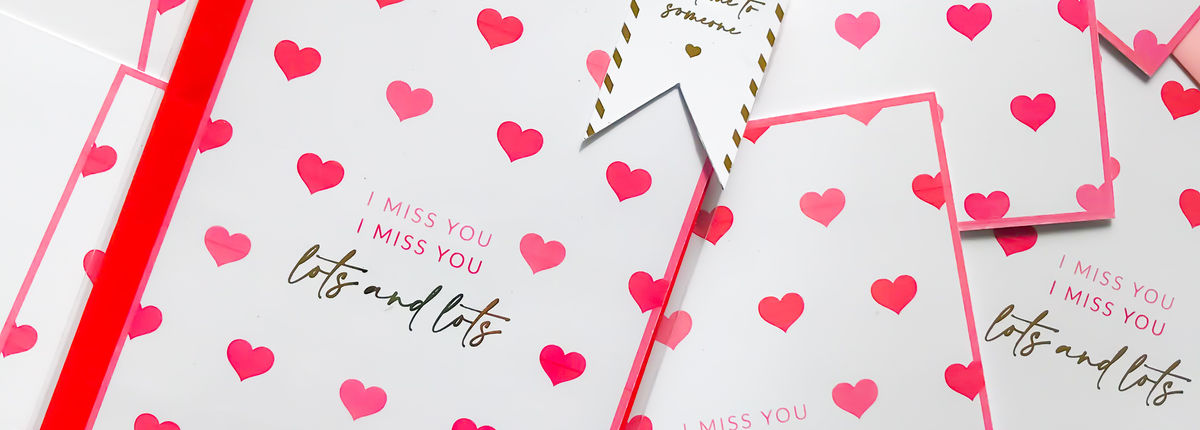 to
someone
I MISS YOU
I MISS YOU
lots and lots
I MISS YOU
I MISS YOU
I MISS YOU
lots and lots